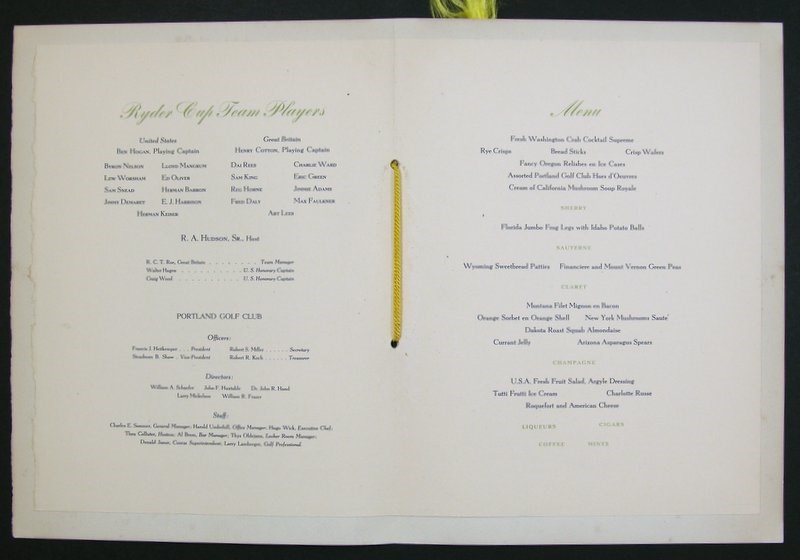 Ryder Cup Team Players
United States
Great Britain
Ben Hogan, Playing Captain
Henry Cotton, Playing Captain
Byron Nelson Lloyd Mangrum Dai Rees Charlie Ward
Lew Worsham Ed Oliver Sam King Eric Green
Sam Snead Herman Barron Reg Horne Jimmie Adams
Jimmy Demaret E. J. Harrison Fred Daly Max Faulkner
Herman Keiser Art Lees
R. A. Hudson, Sr., Host
R. C. T. Roe, Great Britain . . . . . . . . Team Manager
Walter Hagen . . . . . . . . . . U. S. Honorary Captain
Craig Wood . . . . . . . . . . . U. S. Honorary Captain
PORTLAND GOLF CLUB
Officers:
Francis J. . . . President Robert S. Miller . . . . . . Secretary
R. Shaw . Vice-President Robert R. . . . . . . Treasurer
Directors:
William A. Schaefer John F. Dr. John R. Hand
Larry William B. Frazer
Staff:
Charles E. General Manager; Harold Underhill, Office Manager; Hugo Executive Chef;
Al Bean, Bar Manager; Locker Room Manager;
Donald Junor, Course Superintendent; Larry Lamberger, Golf Professional
Menu
Fresh Washington Crab Cocktail Supreme
Rye Crisps Bread Sticks Crisp Wafers
Fancy Oregon Relishes en Ice Cases
Assorted Portland Golf Club Hors d'Oeuvres
Cream of California Mushroom Soup Royale
SHERRY
Florida Jumbo Frog Legs with Idaho Potato Balls
SAUTERNE
Wyoming Sweetbread Patties Financiere and Mount Vernon Green Peas
CLARET
Montana Filet Mignon en Bacon
Orange Sorbet en Orange Shell New York Mushrooms Saute'
Dakota Roast Squab Almondaise
Currant Jelly Arizona Asparagus Spears
CHAMPAGNE
U.S.A. Fresh Fruit Salad, Argyle Dressing
Tutti Frutti Ice Cream Charlotte Russe
Roquefort and American Cheese
LIQUEURS CIGARS
COFFEE MINTS